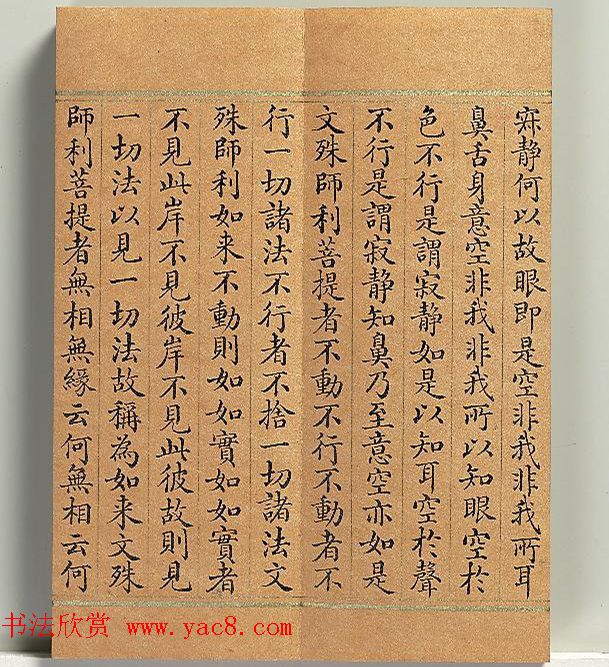 寂静何以故眼即是空非我非我所耳
鼻舌身意空非我非我所以知眼空於
色不行是謂寂静如是以知耳空於聲
不行是謂寂静知鼻乃至意空亦如是
文殊師利菩提者不動不行不動者不
行一切諸法不行者不捨一切諸法文
殊師利如来不動則如如實如如實者
不見此岸不見彼岸不見此彼故則見
一切法以見一切法故稱為如来文殊
師利菩提者無相無緣云何無相云何
书法欣赏 www.yac8.com